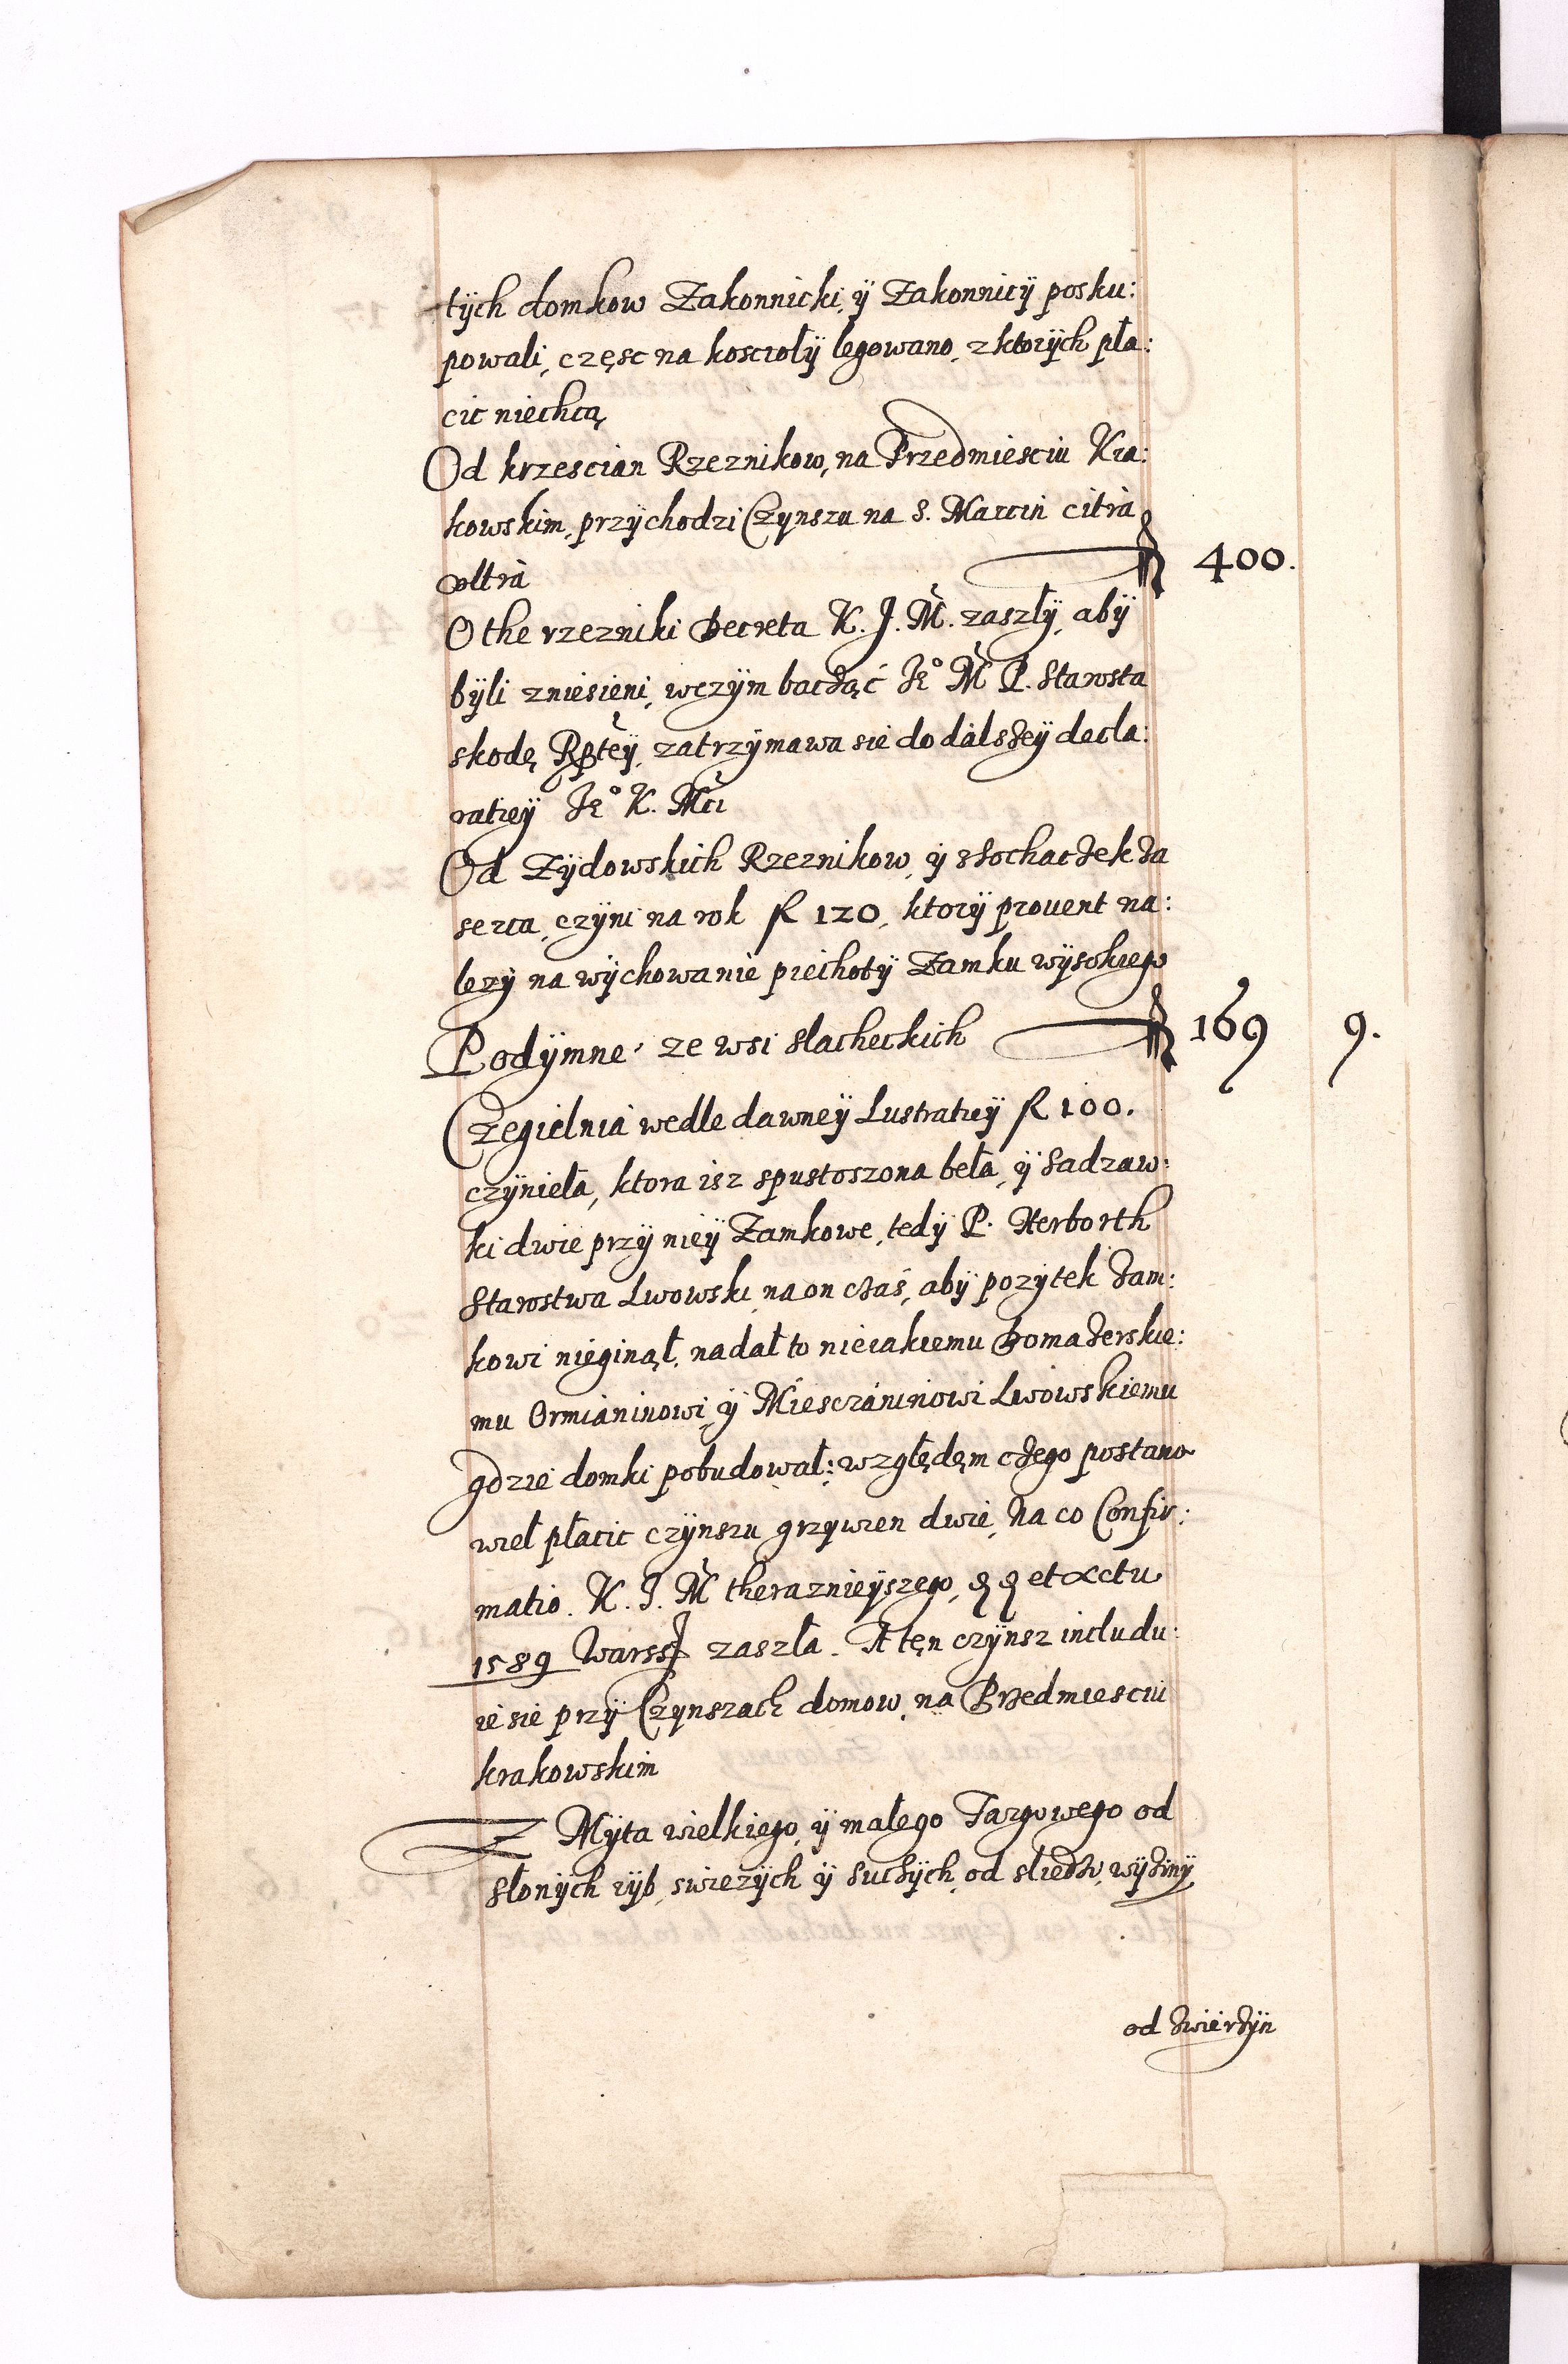 tÿch domkow Zakonnicki, ÿ Zakonnicÿ posku:
powali, częsc na kosciołÿ legowano, z ktorÿch pła:
cic niechcą
Od krzescian Rzeznikow, na Przedmiesciu Kra:
kowskim, przÿchodzi Czynszu na S. Marcin citra
vltra fl 400.
O the rzezniki Decreta K. J. M. zaszłÿ, abÿ
bÿli zniesieni, w czÿm bacząc Je° M P. Starosta
skodę Rpteÿ, zatrzÿmawa sie do dalszeÿ decla:
ratieÿ Je° K. Mci
Od Zÿdowskich Rzeznikow, ÿ
serca, czÿni na rok fl 120, ktorÿ prouent na:
lezÿ na wÿchowanie piechotÿ Zamku wÿsokiego
Podÿmne ze wsi slacheckich fl 169 9.
Czegielnia wedle dawneÿ Lustratieÿ fl 100.
czÿnieła, ktora isz spustoszona beła, ÿ Sadzaw:
ki dwie przÿ nieÿ Zamkowe, tedÿ P. Herborth
Starostwa Lwowski, na on czas, abÿ pozÿtek zam:
kowi nieginął, nadał to nieiakiemu Bomazerskie:
mu Ormianinowi, ÿ Miesczaninowi Lwowskiemu
gdzie domki pobudował: względęm czego postano
wieł płacic czÿnszu grzywien dwie, na co Confir:
matio. K. J. M theraznieÿszego, et actu
1589 Warss zaszła. A tęn czÿnsz includu:
ie sie przÿ Czynszach domow, na Przedmiesciu
krakowskim
Z Mÿta wielkiego, ÿ małego Targowego od
słonÿch rÿb, swiezÿch ÿ suchÿch, od sliedzi, wÿzinÿ
od zwierzÿn